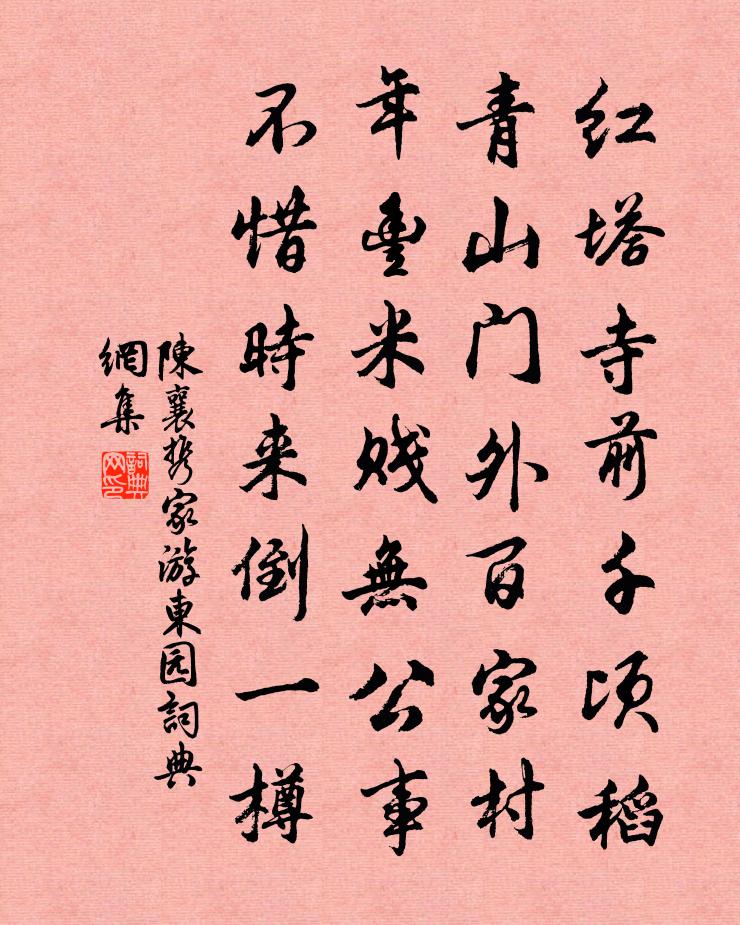 红塔寺前千顷稻
青山門外百家村
年豊米贱無公事
不惜時来倒一樽
陳襄携家游東园詞典
網集
詞典网印